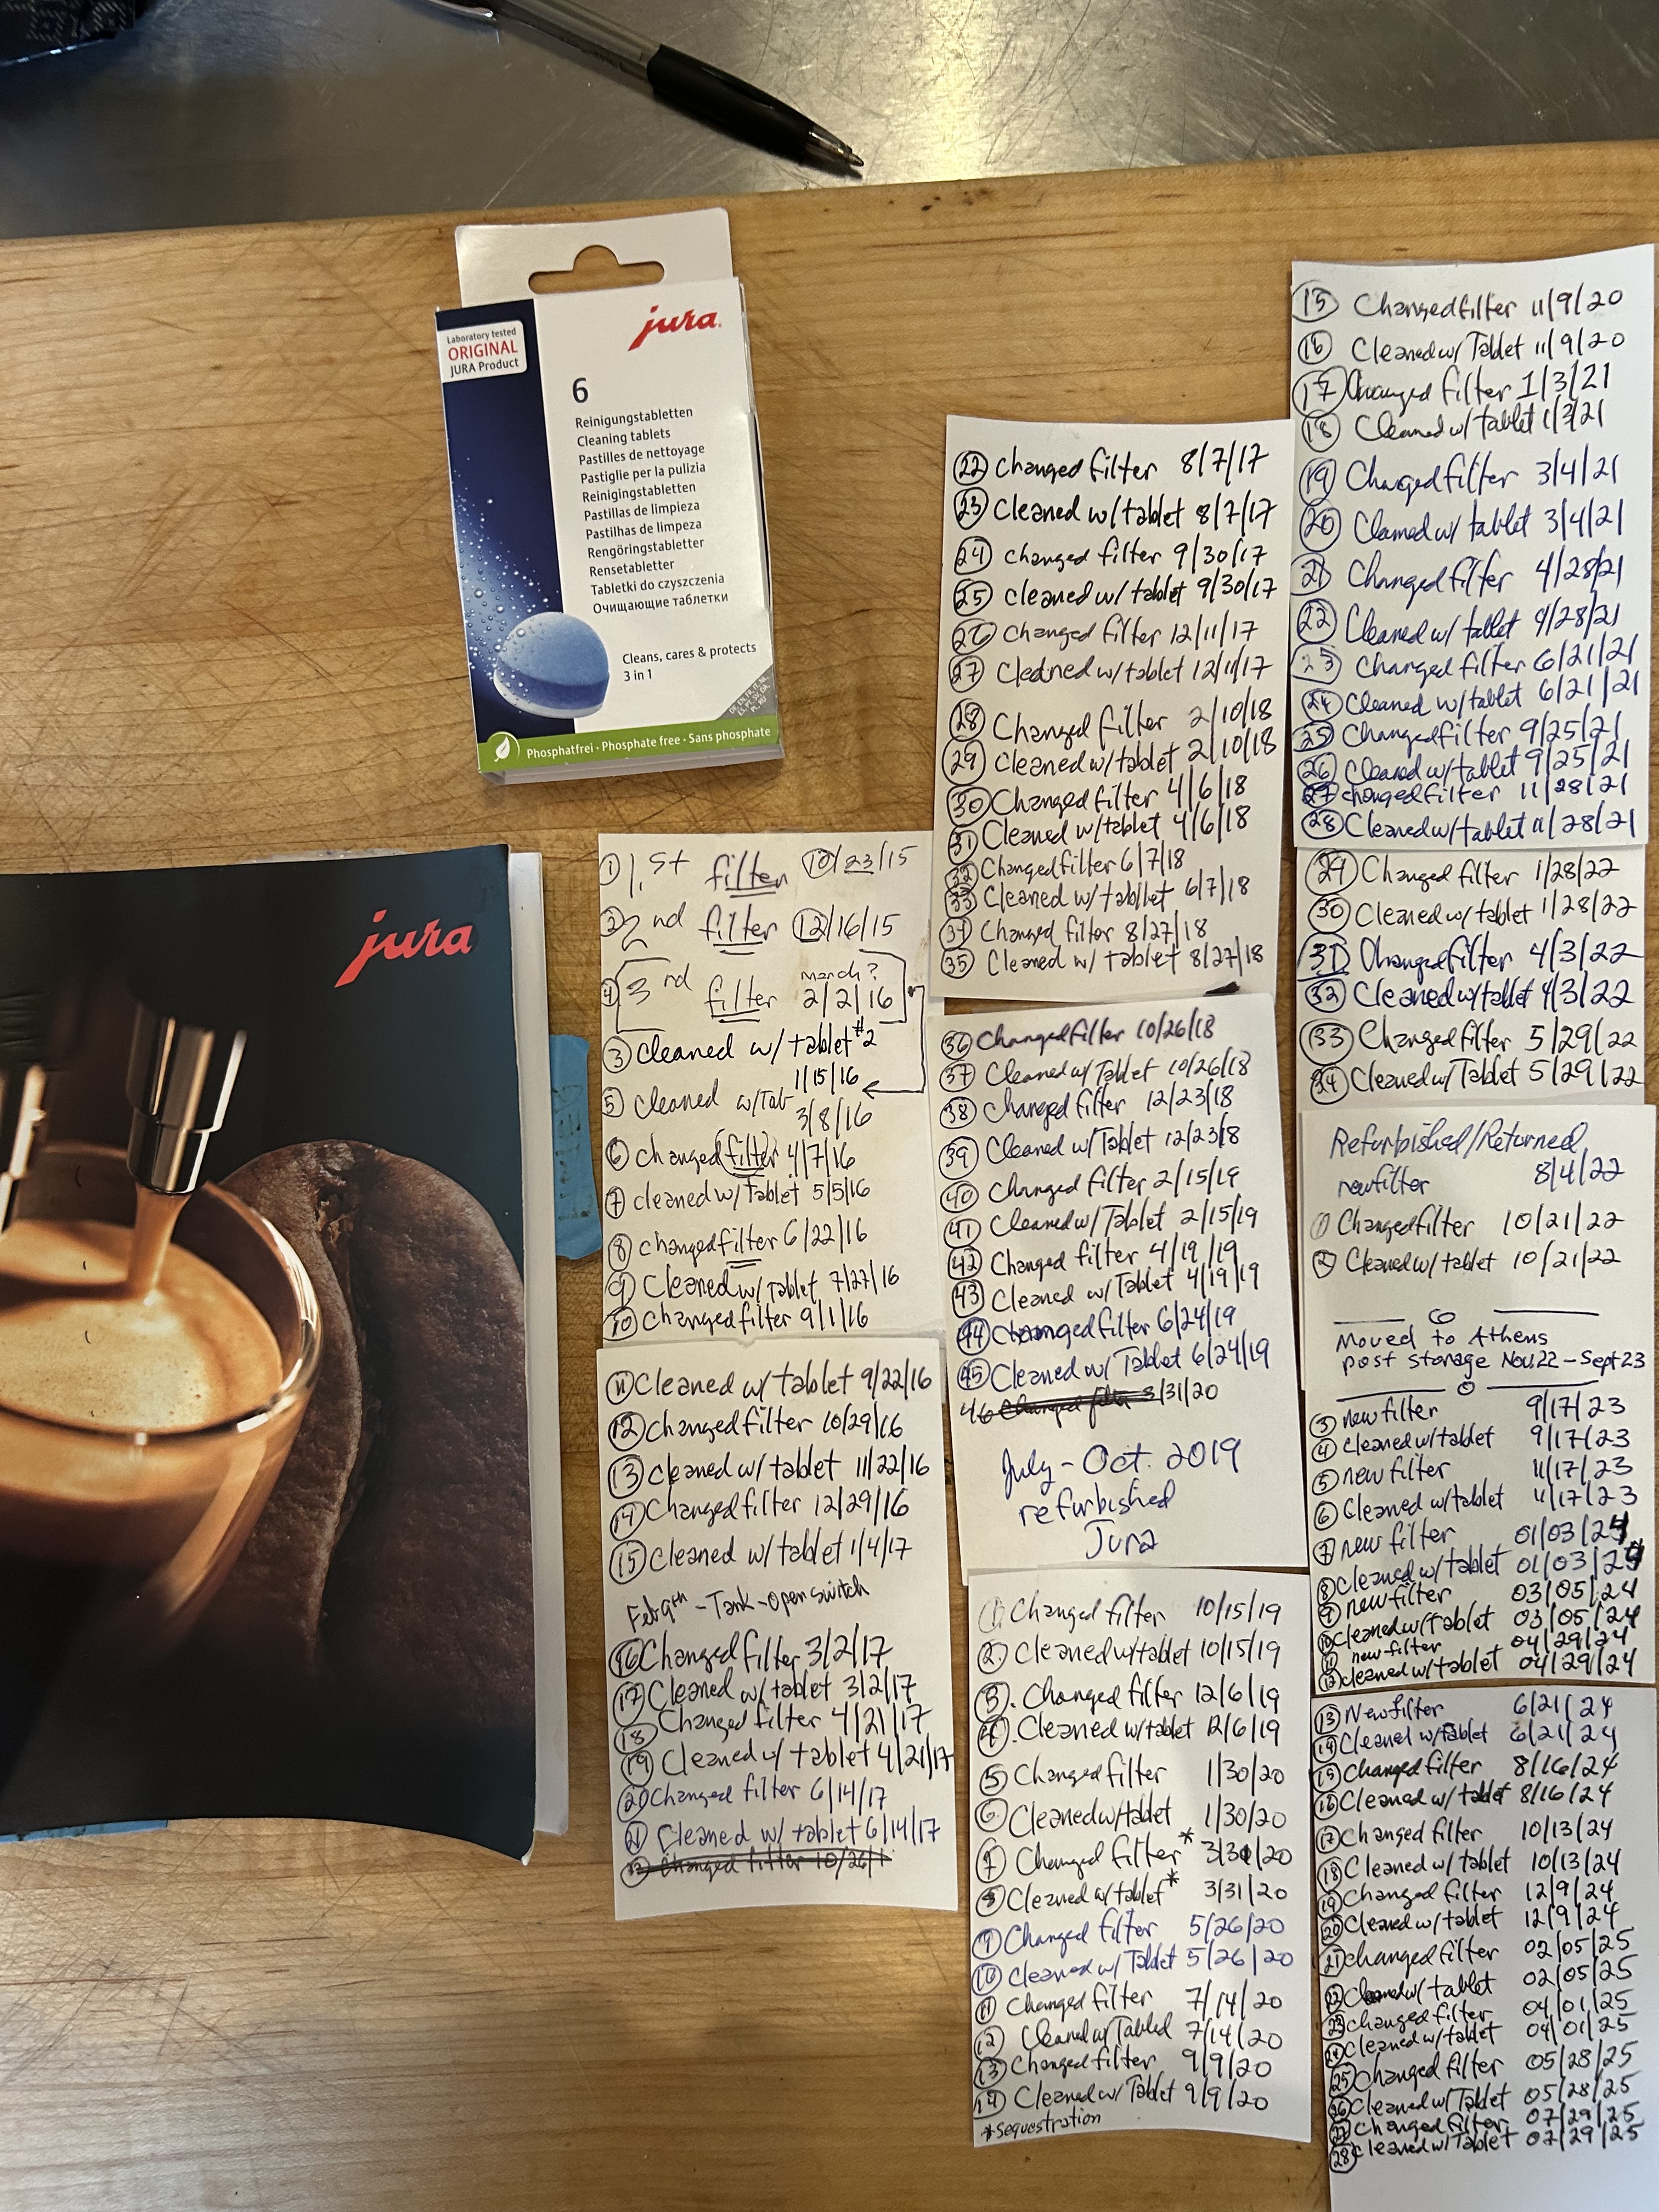 Laboratory tested
ORIGINAL
JURA Product
jura
6
Reinigungstabletten
Cleaning tablets
Pastilles de nettoyage
Pastiglie per la pulizia
Reinigingstabletten
Pastillas de limpieza
Pastilhas de limpeza
Rengöringstabletter
Rensetabletter
Tabletki do czyszczenia
Очищающие таблетки
Cleans, cares & protects
3 in 1
Phosphatfrei · Phosphate free · Sans phosphate
jura
① 1,st filter 10/23/15
② 2nd filter 12/16/15
④ 3rd filter march? 2/2/16
③ Cleaned w/ tablet #2
1/15/16
⑤ Cleaned w/Tab
3/8/16
⑥ changed filter 4/7/16
⑦ cleaned w/Tablet 5/5/16
⑧ changed filter 6/22/16
⑨ Cleaned w/Tablet 7/27/16
⑩ Changed filter 9/1/16
⑪ Cleaned w/tablet 9/22/16
⑫ changed filter 10/29/16
⑬ cleaned w/tablet 11/22/16
⑭ Changed filter 12/29/16
⑮ Cleaned w/tablet 1/4/17
Feb 9th - Tank - Open switch
⑯ Changed filter 3/2/17
⑰ Cleaned w/tablet 3/2/17
⑱ Changed filter 4/21/17
⑲ Cleaned w/ tablet 4/21/17
⑳ Changed filter 6/14/17
㉑ Cleaned w/ tablet 6/14/17
Changed filter 10/26/1
㉒ Changed filter 8/7/17
㉓ Cleaned w/tablet 8/7/17
㉔ changed filter 9/30/17
㉕ cleaned w/tablet 9/30/17
㉖ changed filter 12/11/17
㉗ Cleaned w/tablet 12/11/17
㉘ Changed filter 2/10/18
㉙ Cleaned w/tablet 2/10/18
㉚ Changed filter 4/6/18
㉛ Cleaned w/tablet 4/6/18
㉜ Changed filter 6/7/18
㉝ Cleaned w/ tabllet 6/7/18
㉞ Changed filter 8/27/18
㉟ Cleaned w/ tablet 8/27/18
㊱ Changed filter 10/26/18
㊲ Cleaned w/Tablet 10/26/18
㊳ Changed filter 12/23/18
㊴ Cleaned w/Tablet 12/23/18
㊵ Changed filter 2/15/19
㊶ Cleaned w/Tablet 2/15/19
㊷ Changed filter 4/19/19
㊸ Cleaned w/Tablet 4/19/19
㊹ Changed filter 6/24/19
㊺ Cleaned w/ Tablet 6/24/19
46 Changed filter 3/31/20
July - Oct. 2019
refurbished
Jura
① Changed filter 10/15/19
②. Cleaned w/tablet 10/15/19
③. Changed filter 12/6/19
④. Cleaned w/tablet 12/6/19
⑤ Changed filter 1/30/20
⑥ Cleaned w/tablet 1/30/20
⑦ Changed filter* 3/31/20
⑧ Cleaned w/tablet* 3/31/20
⑨ Changed filter 5/26/20
⑩ Cleaned w/ Tablet 5/26/20
⑪ Changed filter 7/14/20
⑫ Cleaned w/Tabled 7/14/20
⑬ Changed filter 9/9/20
⑭ Cleaned w/ Tablet 9/9/20
*Sequestration
⑮ Changed filter 11/9/20
⑯ Cleaned w/ Tablet 11/9/20
⑰ Changed filter 1/3/21
⑱ Cleaned w/ tablet 1/3/21
⑲ Changed filter 3/4/21
⑳ Cleaned w/ tablet 3/4/21
㉑ Changed filter 4/28/21
㉒ Cleaned w/ tablet 4/28/21
㉓ Changed filter 6/21/21
㉔ Cleaned w/tablet 6/21/21
㉕ Changed filter 9/25/21
㉖ Cleaned w/tablet 9/25/21
㉗ changed filter 11/28/21
㉘ Cleaned w/tablet 11/28/21
㉙ Changed filter 1/28/22
㉚ Cleaned w/tablet 1/28/22
㉛ Changed filter 4/3/22
㉜ Cleaned w/tablet 4/3/22
㉝ Changed filter 5/29/22
㉞ Cleaned w/Tablet 5/29/22
Refurbished/Returned
new filter 8/4/22
① Changed filter 10/21/22
② Cleaned w/ tablet 10/21/22
Moved to Athens
post storage Nov.22 - Sept 23
③ new filter 9/17/23
④ cleaned w/tablet 9/17/23
⑤ new filter 11/17/23
⑥ Cleaned w/tablet 11/17/23
⑦ new filter 01/03/24
⑧ cleaned w/tablet 01/03/24
⑨ new filter 03/05/24
⑩ cleaned w/tablet 03/05/24
⑪ new filter 04/29/24
⑫ cleaned w/tablet 04/29/24
⑬ New filter 6/21/24
⑭ Cleaned w/tablet 6/21/24
⑮ Changed filter 8/16/24
⑯ Cleaned w/ tablet 8/16/24
⑰ Changed filter 10/13/24
⑱ Cleaned w/ tablet 10/13/24
⑲ Changed filter 12/9/24
⑳ Cleaned w/ tablet 12/9/24
㉑ changed filter 02/05/25
㉒ Cleaned w/ tablet 02/05/25
㉓ changed filter 04/01/25
㉔ cleaned w/tablet 04/01/25
㉕ Changed filter 05/28/25
㉖ Cleaned w/Tablet 05/28/25
㉗ Changed filter 07/29/25
㉘ Cleaned w/Tablet 07/29/25